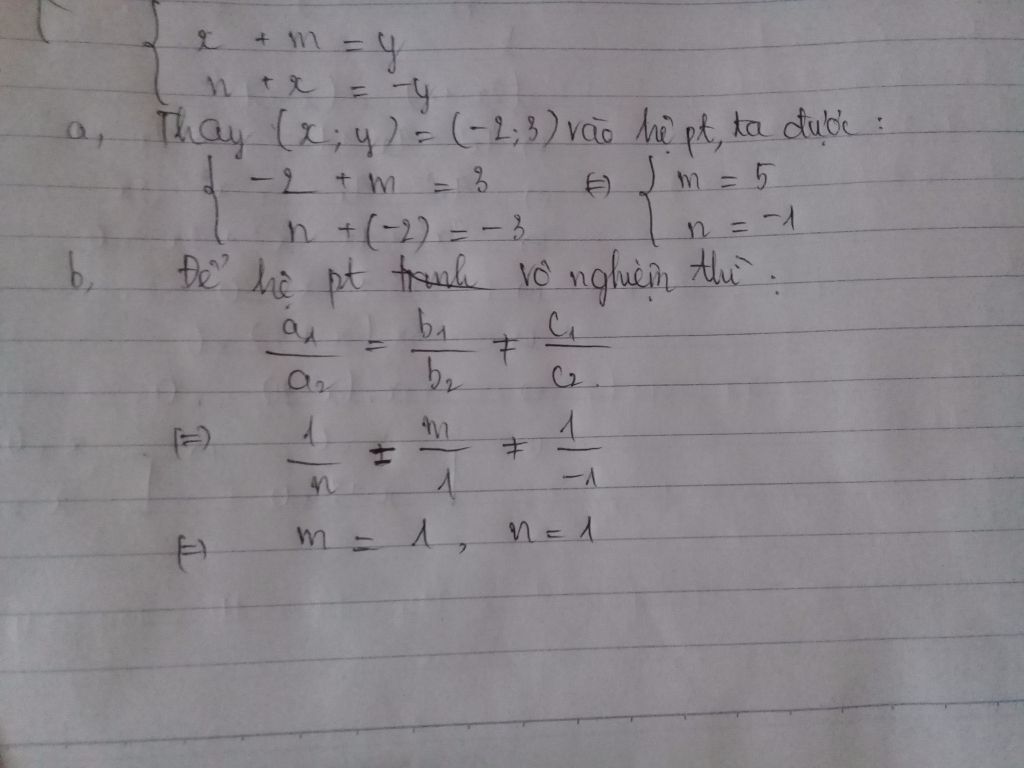 x + m = y
n + x = -y
a, Thay (x; y) = (-2; 3) vào hệ pt, ta được :
-2 + m = 3 (=) m = 5
n + (-2) = -3 n = -1
b, Để hệ pt vô nghiệm thì :
a1/a2 = b1/b2 ≠ c1/c2
(=) 1/n = m/1 ≠ 1/-1
(=) m = 1, n = 1